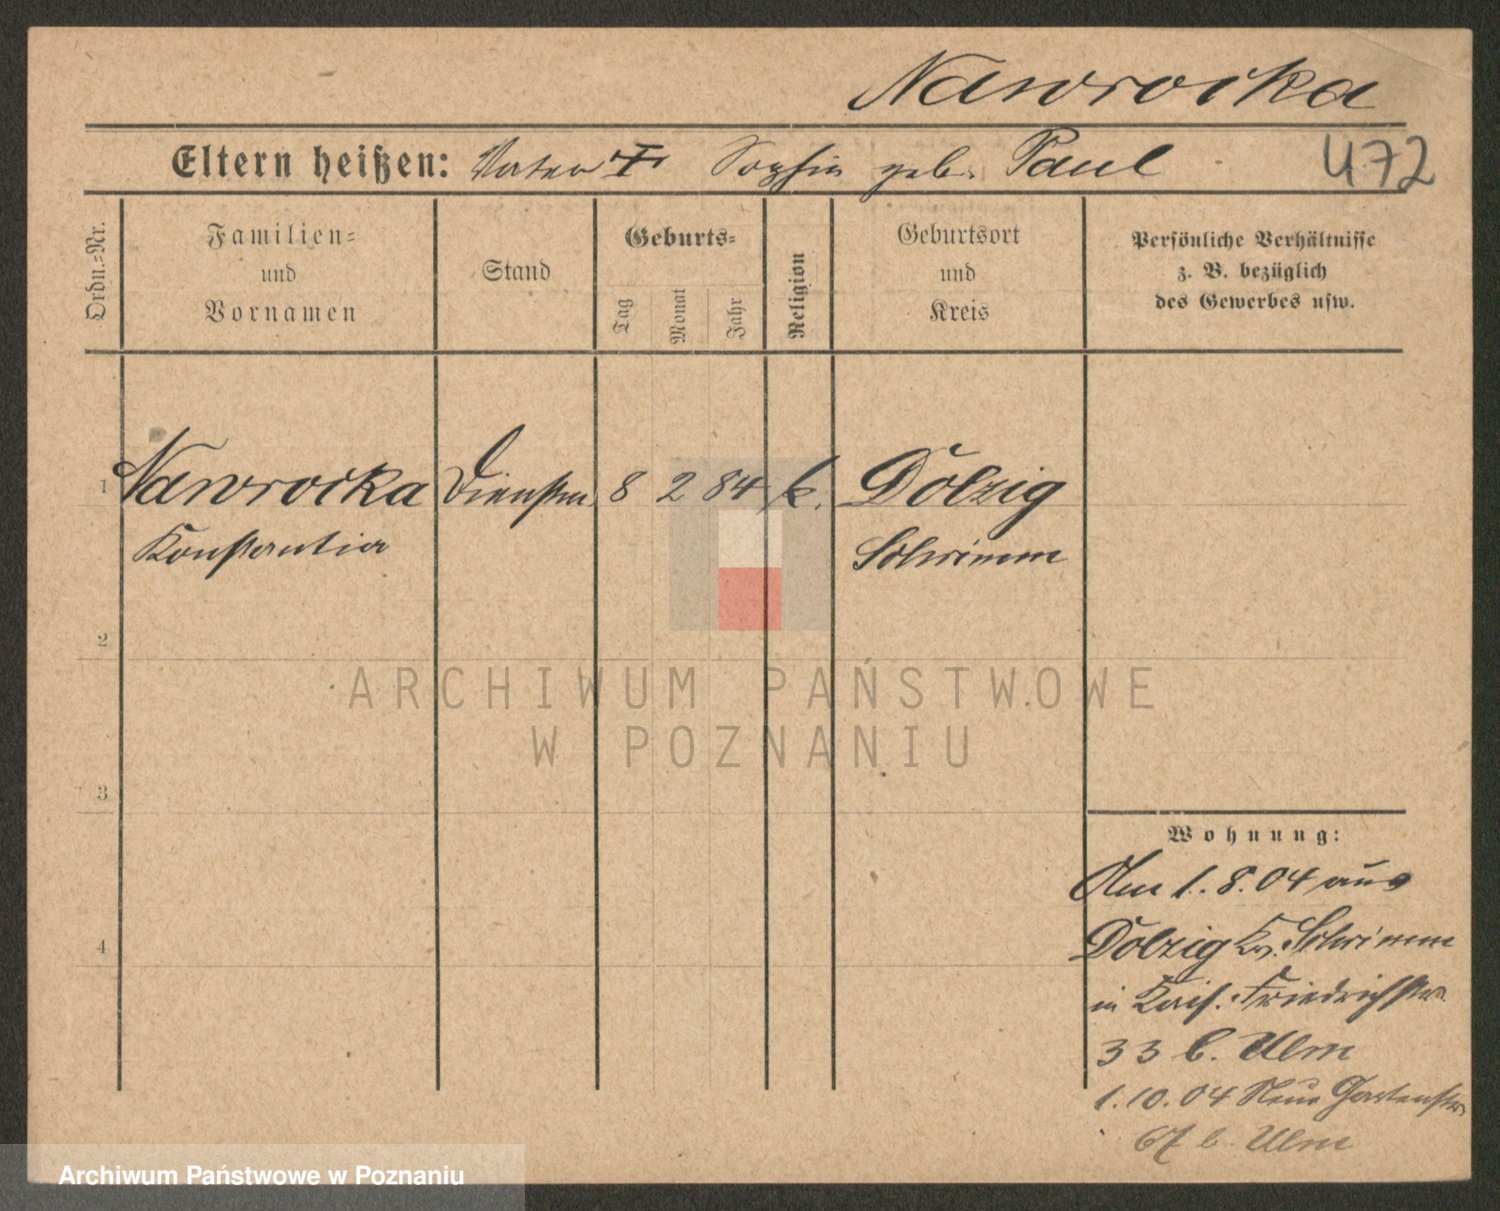 Nawrocka
Eltern heißen: Vater † Sophia geb. Paul
472
Ordn.=Nr.
Familien=
und
Vornamen
Stand
Geburts=
Tag
Monat
Jahr
Religion
Geburtsort
und
Kreis
Persönliche Verhältnisse
z. B. bezüglich
des Gewerbes usw.
1 Nawrocka Dienstm. 8 2 84 k. Dolzig
Konstantia Schrimm
2
ARCHIWUM PAŃSTWOWE
W POZNANIU
3
Wohnung:
Am 1.8.04 aus
4
Dolzig Kr. Schrimm
in Kais. Friedrichstr.
33 b. Ulm
1.10.04 Neue Gartenstr.
67 b. Ulm
Archiwum Państwowe w Poznaniu